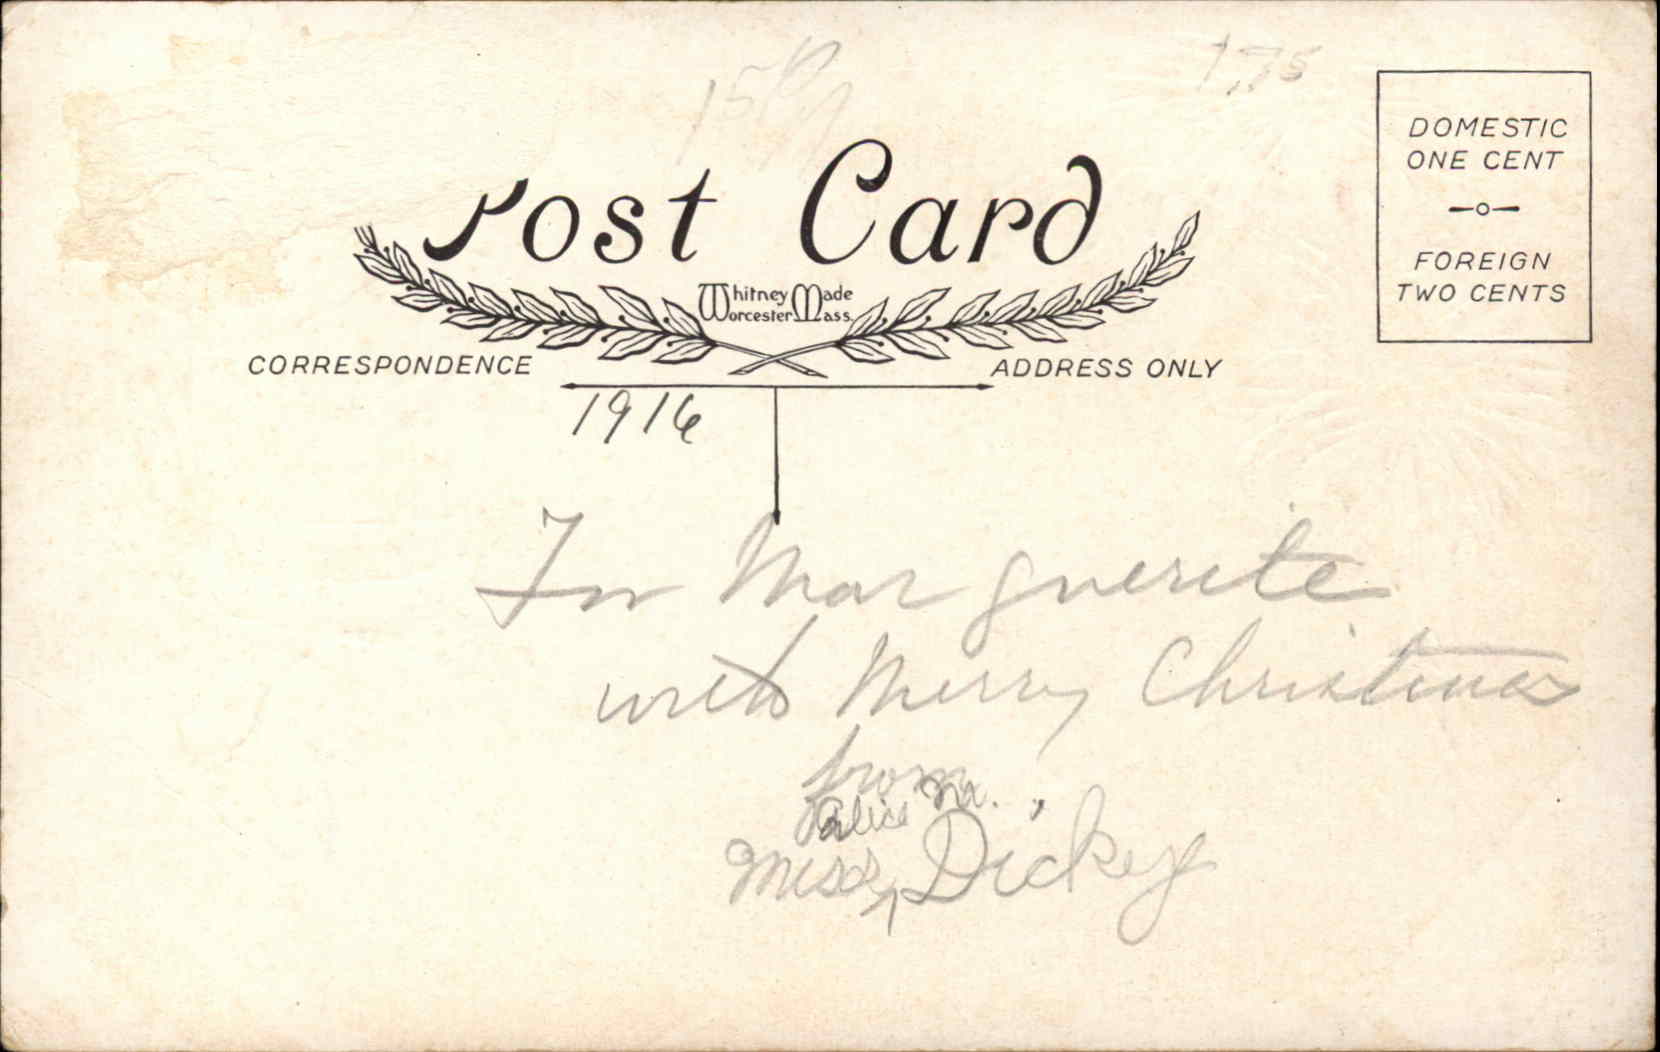 1.75
DOMESTIC
ONE CENT
FOREIGN
TWO CENTS
Post Card
Whitney Made
Worcester Mass.
CORRESPONDENCE
ADDRESS ONLY
1916
To Marguerite
with Merry Christmas
from
Alice M.
Miss Dickey